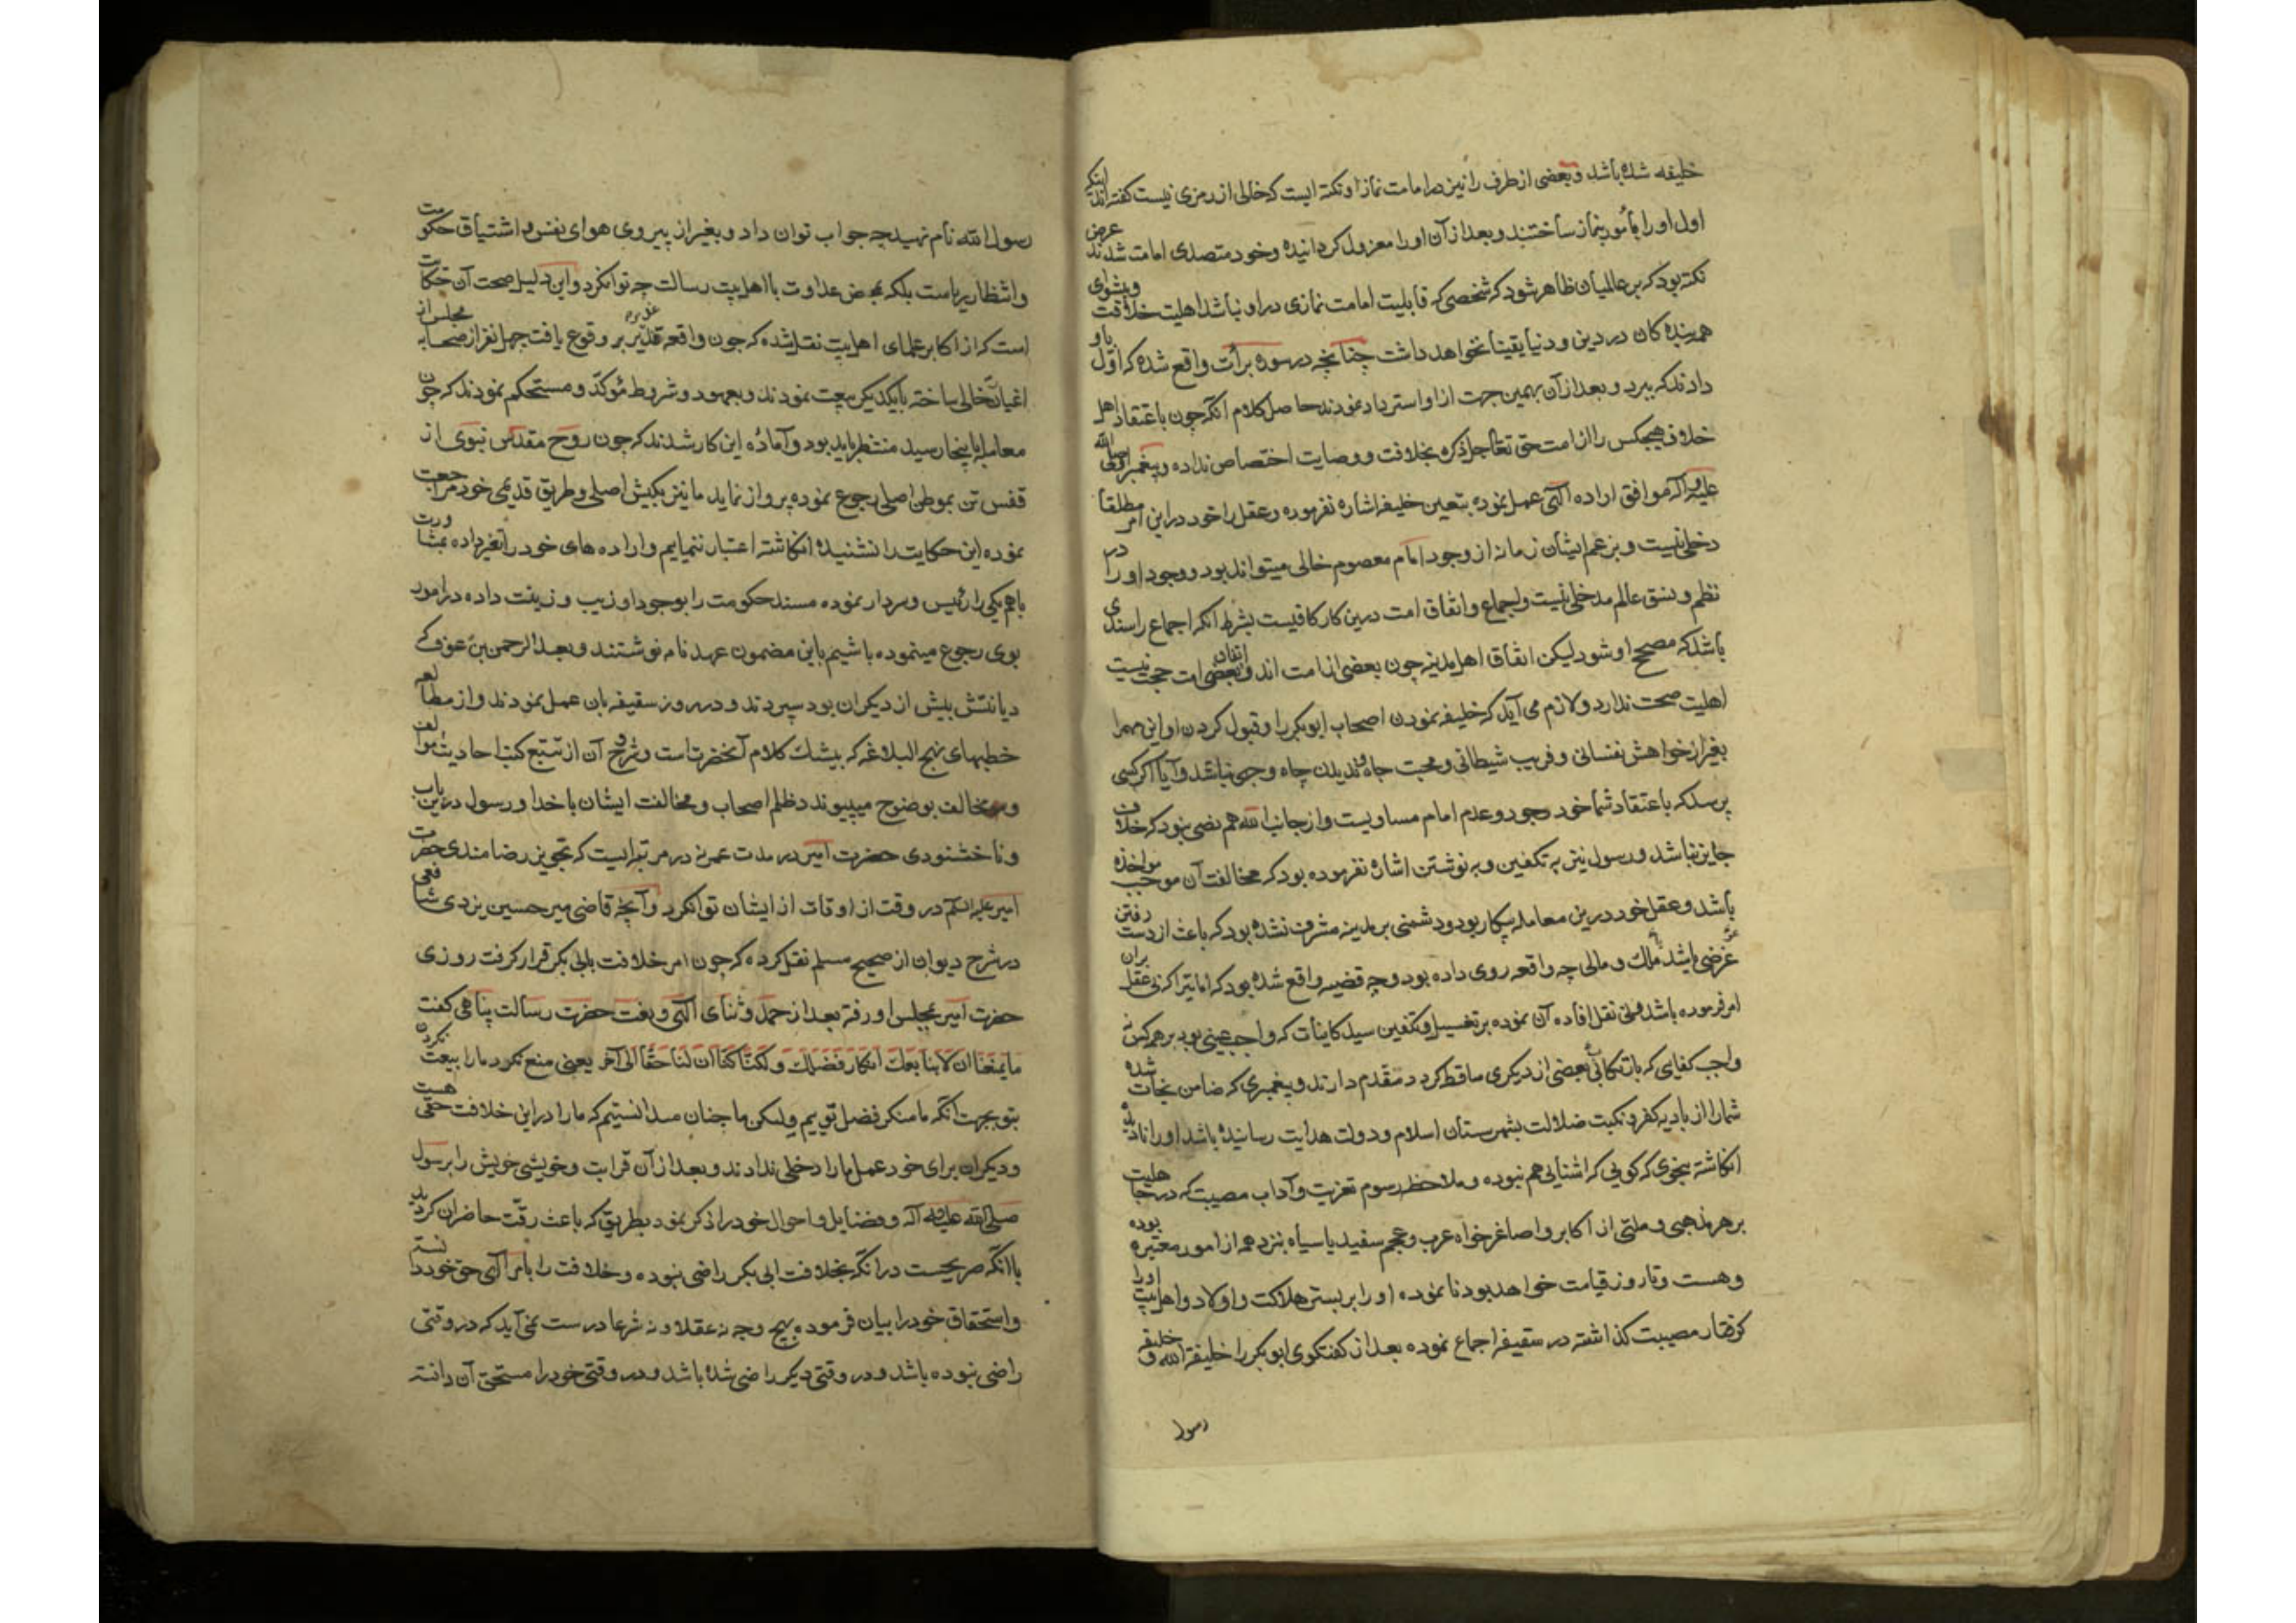 خلیفه شده باشد و بعضی از طرف را نیز در امامت نماز او نکته ایست که خالی از رمزی نیست گفته اند اینکه
اول او را مأمور بنماز ساختند و بعد از آن او را معزول گردانیده و خود متصدی امامت شدند غرض
نکته بود که بر عالمیان ظاهر شود که شخصی که قابلیت امامت نمازی در او نباشد اهلیت خلافت و پیشوای
همه بنده کان در دین و دنیا یقینا نخواهد داشت چنانچه در سوره برأت واقع شده که اول باو
دادند که ببرد و بعد از آن بهمین جهت از او استرداد نمودند حاصل کلام آنکه چون باعتقاد اهل
خلاف هیچکس را از امت حق تعالی جل ذکره بخلافت و وصایت اختصاص نداده و پیغمبر او صلی الله
علیه و آله موافق اراده الهی عمل نموده بتعین خلیفه اشاره نفرموده و عقل را خود در این امر مطلقا
دخلی نیست و بزعم ایشان زمانه از وجود امام معصوم خالی میتواند بود و وجود او را در
نظم و نسق عالم مدخلی نیست و اجماع و اتفاق امت درین کار کافیست بشرط آنکه اجماع را سندی
باشد که مصحح او شود لیکن اتفاق اهل مدینه چون بعضی از امت اند و اتفاق بعضی امت حجت نیست
اهلیت صحت ندارد و لازم می آید که خلیفه نمودن اصحاب ابوبکر را و قبول کردن او این مهم را
بغیر از خواهش نفسانی و فریب شیطانی و محبت جاه و ندیدن چاه وجهی نباشد و آیا اگر کسی
پرسد که باعتقاد شما خود وجود و عدم امام مساویست و از جانب الله هم نصی نبود که خلاف
جایز نباشد و رسول نیز به تکفین و به نوشتن اشاره نفرموده بود که مخالفت آن موجب مواخذه
باشد و عقل خود درین معامله بیکار بود و دشمنی بر مدینه مشرف نشده بود که باعث از دست رفتن
عرضی باشد ملک و مالی چه واقعه روی داده بود و چه قضیه واقع شده بود که بران عقل
امر فرموده باشد نقل افاده آن نموده بر تغسیل و تکفین سید کاینات که واجب عینی بود بر هر کس نه
واجب کفای که بارتکاب بعضی از دیگری ساقط گردد مقدم دارند و پیغمبری که ضامن نجات شده
شما را از بادیه کفر و نکبت ضلالت بشهرستان اسلام و دولت هدایت رسانیده باشد او را نادیده
انکاشته بنحوی که کویی که آشنایی هم نبوده و ملاحظه رسوم تعزیت و آداب مصیبت که در جاهلیت
بر هر مذهبی و ملتی از اکابر و اصاغر خواه عرب و عجم سفید یا سیاه نزد همه از امور معتبره بوده
و هست و تا روز قیامت خواهد بود نا نموده او را بر بستر هلاکت و اولاد و اهل بیت او را
گرفتار مصیبت گذاشته در سقیفه اجماع نموده بعد از گفتگوی ابوبکر را خلیفة الله و خلیفه
رسول
رسول الله نام نهید چه جواب توان داد و بغیر از پیروی هوای نفس و اشتیاق حکومت
و انتظار ریاست بلکه بمحض عداوت با اهل بیت رسالت چه توان کرد و این دلیل صحت آن حکایت
است که از اکابر علمای اهل بیت نقل شده که چون واقعه غدیر بر وقوع یافت چهل نفر از صحابه مجلس از
اغیار خالی ساخته با یکدیگر بیعت نمودند و بعهود و شروط مؤکد و مستحکم نمودند که چون
معامله باینجا رسید منتظر باید بود و آماده این کار شدند که چون روح مقدس نبوی از
قفس تن بموطن اصلی رجوع نموده پرواز نماید ما نیز بکیش اصلی و طریق قدیمی خود مراجعت
نموده این حکایت را نشنیده انکاشته اعتبار ننمایم و اراده های خود را تغیر داده بمشاورت
باهم یکی را رئیس و سردار نموده مسند حکومت را بوجود او زیب و زینت داده در امور
بوی رجوع مینموده باشیم باین مضمون عهد نامه نوشتند و بعبد الرحمن بن عوف که
دیانتش بیش از دیگران بود سپردند و در روز سقیفه بان عمل نمودند و از مطالعه
خطبهای نهج البلاغه که بیشک کلام آنحضرت است و شروح آن از تتبع کتب احادیث موالف
و مخالف بوضوح میپیوندد ظلم اصحاب و مخالفت ایشان با خدا و رسول در این باب
و ناخشنودی حضرت امیر در مدت عمر نه در مرتبه ایست که تجویز رضامندی حضرت
امیر علیه السلام در وقت از اوقات از ایشان توان کرد و آنچه قاضی میر حسین یزدی شافعی
در شرح دیوان از صحیح مسلم نقل کرده که چون امر خلافت بابی بکر قرار گرفت روزی
حضرت امیر بمجلس او رفته بعد از حمد و ثنای الهی و نعت حضرت رسالت پناهی گفت
ما یمنعنا ان لا نبایعک انکار فضلک ولکنا کنا ان لنا حقا الی آخر یعنی منع نکرد ما را بیعت نکردن
بتو بجهت آنکه ما منکر فضل توییم ولیکن ما چنان میدانستیم که ما را در این خلافت حقی هست
و دیگران برای خود عمل ما را دخلی ندادند و بعد از آن قرابت و خویشی خویش را برسول
صلی الله علیه و آله و فضایل و احوال خود را ذکر نمود بطریق که باعث رقت حاضران گردید
با آنکه صریحست در آنکه بخلافت ابی بکر راضی نبوده و خلافت را بامر الهی حق خود دانسته
و استحقاق خود را بیان فرموده بهیچ وجه نه عقلا و نه شرعا درست نمی آید که در وقتی
راضی نبوده باشد و در وقتی دیگر راضی شده باشد و در وقتی خود را مستحق آن دانسته